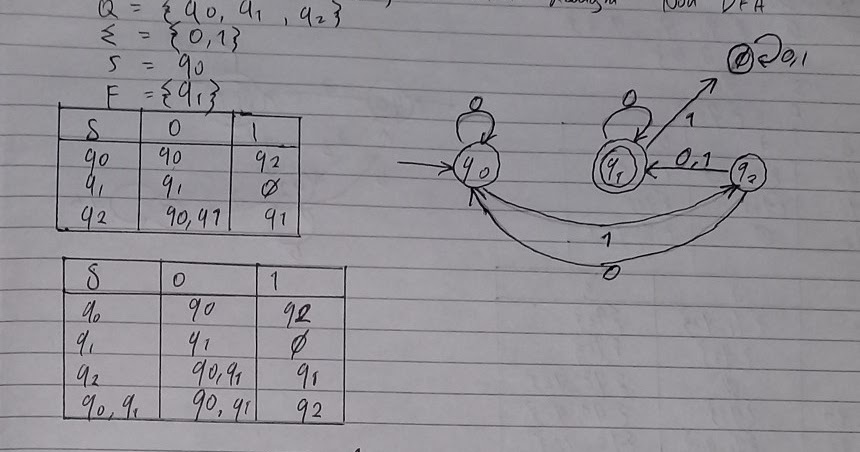 Q = {q0, q1, q2}
Non DFA
Σ = {0,1}
S = q0
F = {q1}
δ 0 1
q0 q0 q2
q1 q1 ∅
q2 q0,q1 q1
δ 0 1
q0 q0 q2
q1 q1 ∅
q2 q0,q1 q1
q0,q1 q0,q1 q2
∅ 0,1
0 0 1
q0 q1 0,1 q2
1
0